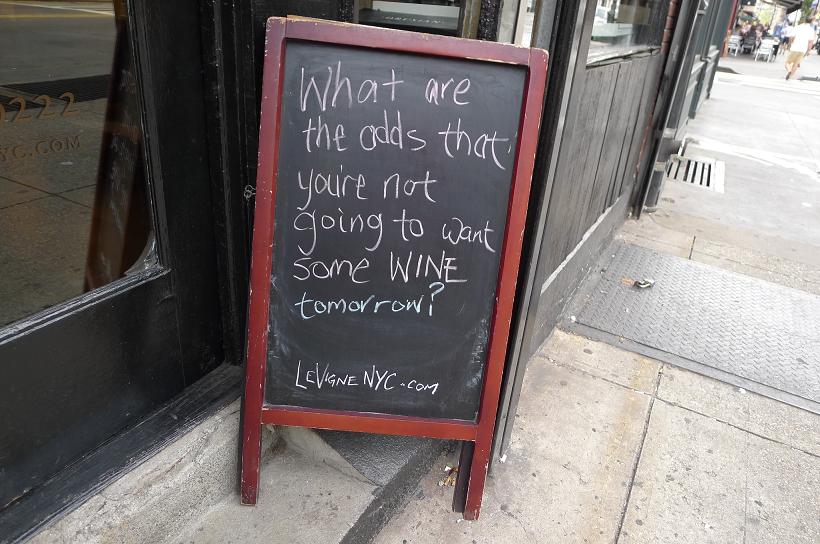 What are
the odds that
you're not
going to want
some WINE
tomorrow?
LEVIGNENYC.COM
0222
YC.COM